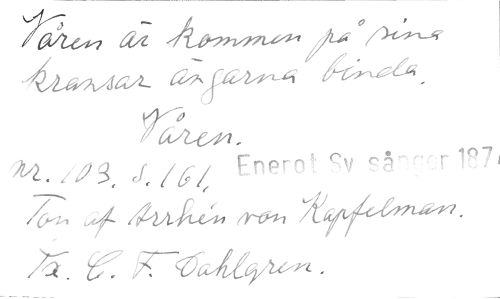 Våren är kommen på sina
kransar ängarna binda.
Våren.
nr. 103. s. 161. Enerot Sv sånger 187
Ton af Arrhén von Kapfelman.
Tx. C. F. Dahlgren.